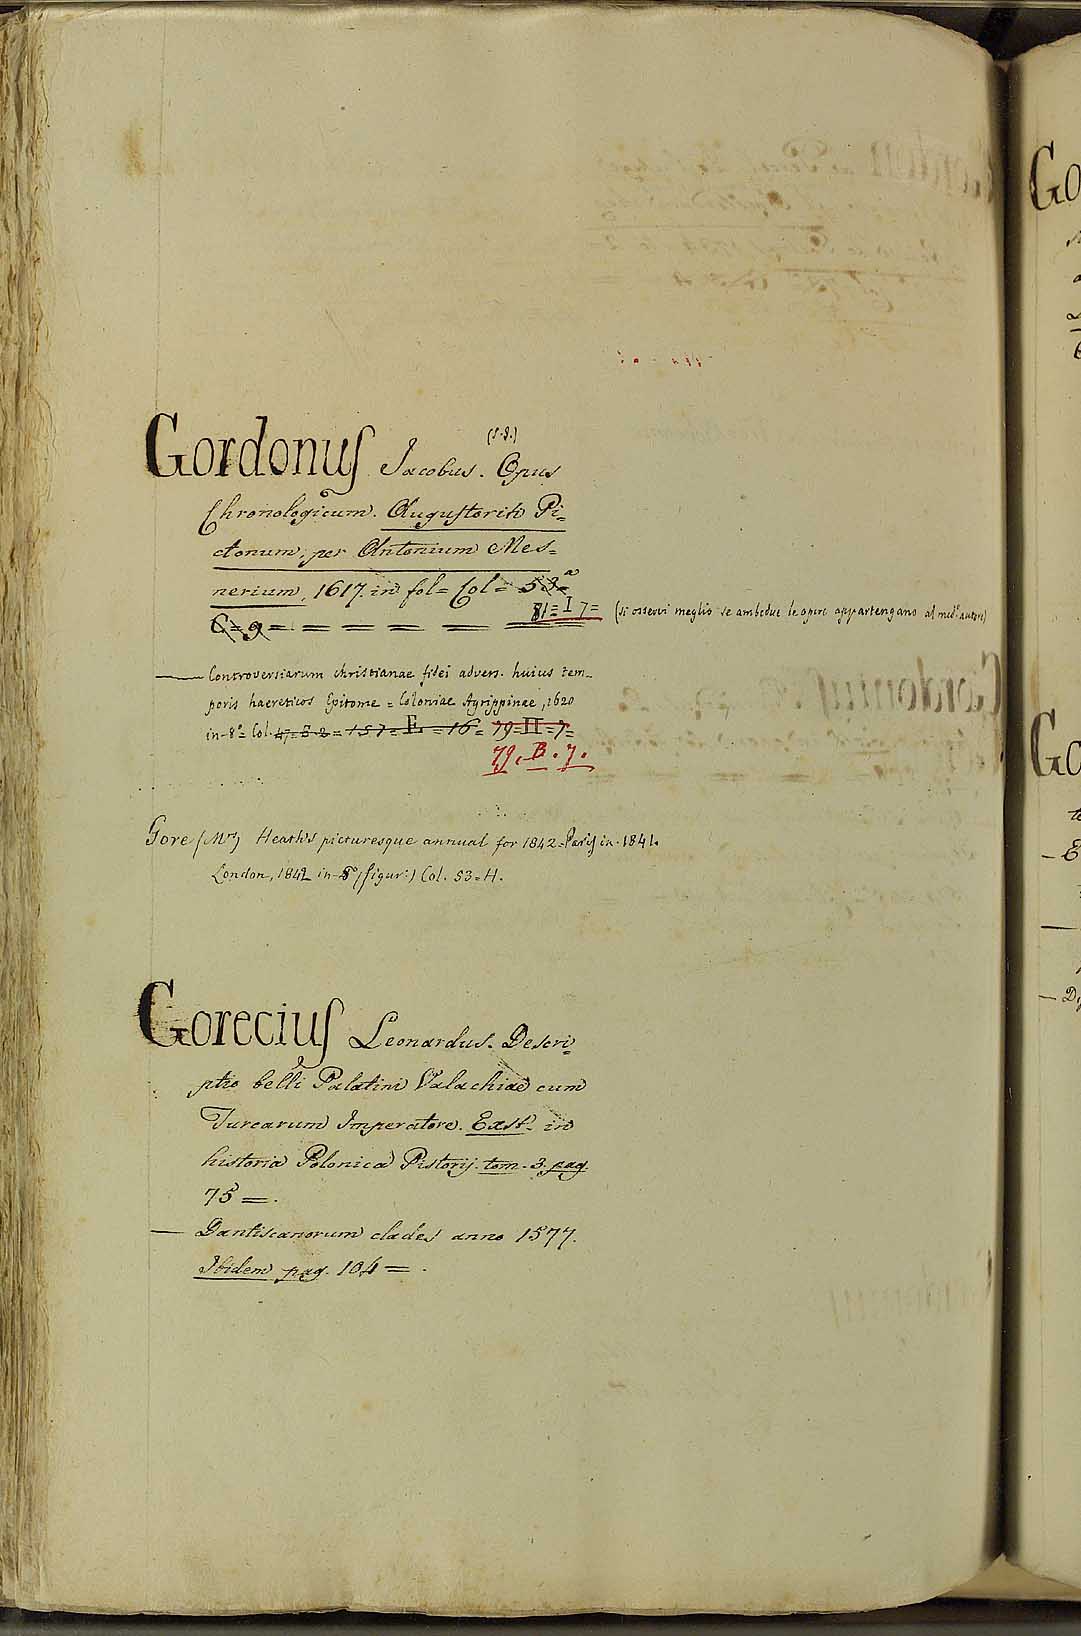 (S. J.)
Gordonus Jacobus. Opus
Chronologicum. Augustoriti Pi=
ctonum, per Antonium Mes=
nerium, 1617. in fol= Col= 53=a
81= I 7= (si osservi meglio se ambedue le opere appartengano al med.o autore)
C= 9 = = = = = =
— Controversiarum christianae fidei advers. huius tem_
poris haereticos Epitome = Coloniae Agrippinae, 1620
in-8.o= Col. 47= = 157= E =16= 79=H=7=
79. B. 7.
Gore (Mrs) Heath's picturesque annual for 1842= Paris in 1841.
London, 1842 in-8o (figur:) Col. 53=H.
Gorecius Leonardus. Descri=
ptio belli Palatini Valachiae cum
Turcarum Imperatore. Exst. in
historia Polonica Pistorij. tom. 3. pag.
75 =.
— Dantiscanorum clades anno 1577.
Ibidem pag. 104 = .
Go
Go